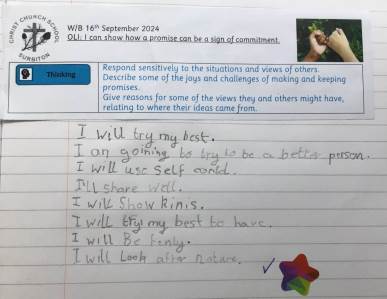 CHRIST CHURCH SCHOOL
SURBITON
W/B 16th September 2024
OLI: I can show how a promise can be a sign of commitment.
Thinking
Respond sensitively to the situations and views of others.
Describe some of the joys and challenges of making and keeping
promises.
Give reasons for some of the views they and others might have,
relating to where their ideas came from.
I will try my best.
I an goining to try to be a better person.
I will use self
I'll share well.
I will show kinis.
I will try my best to have.
I will Be
I will Look after nature.